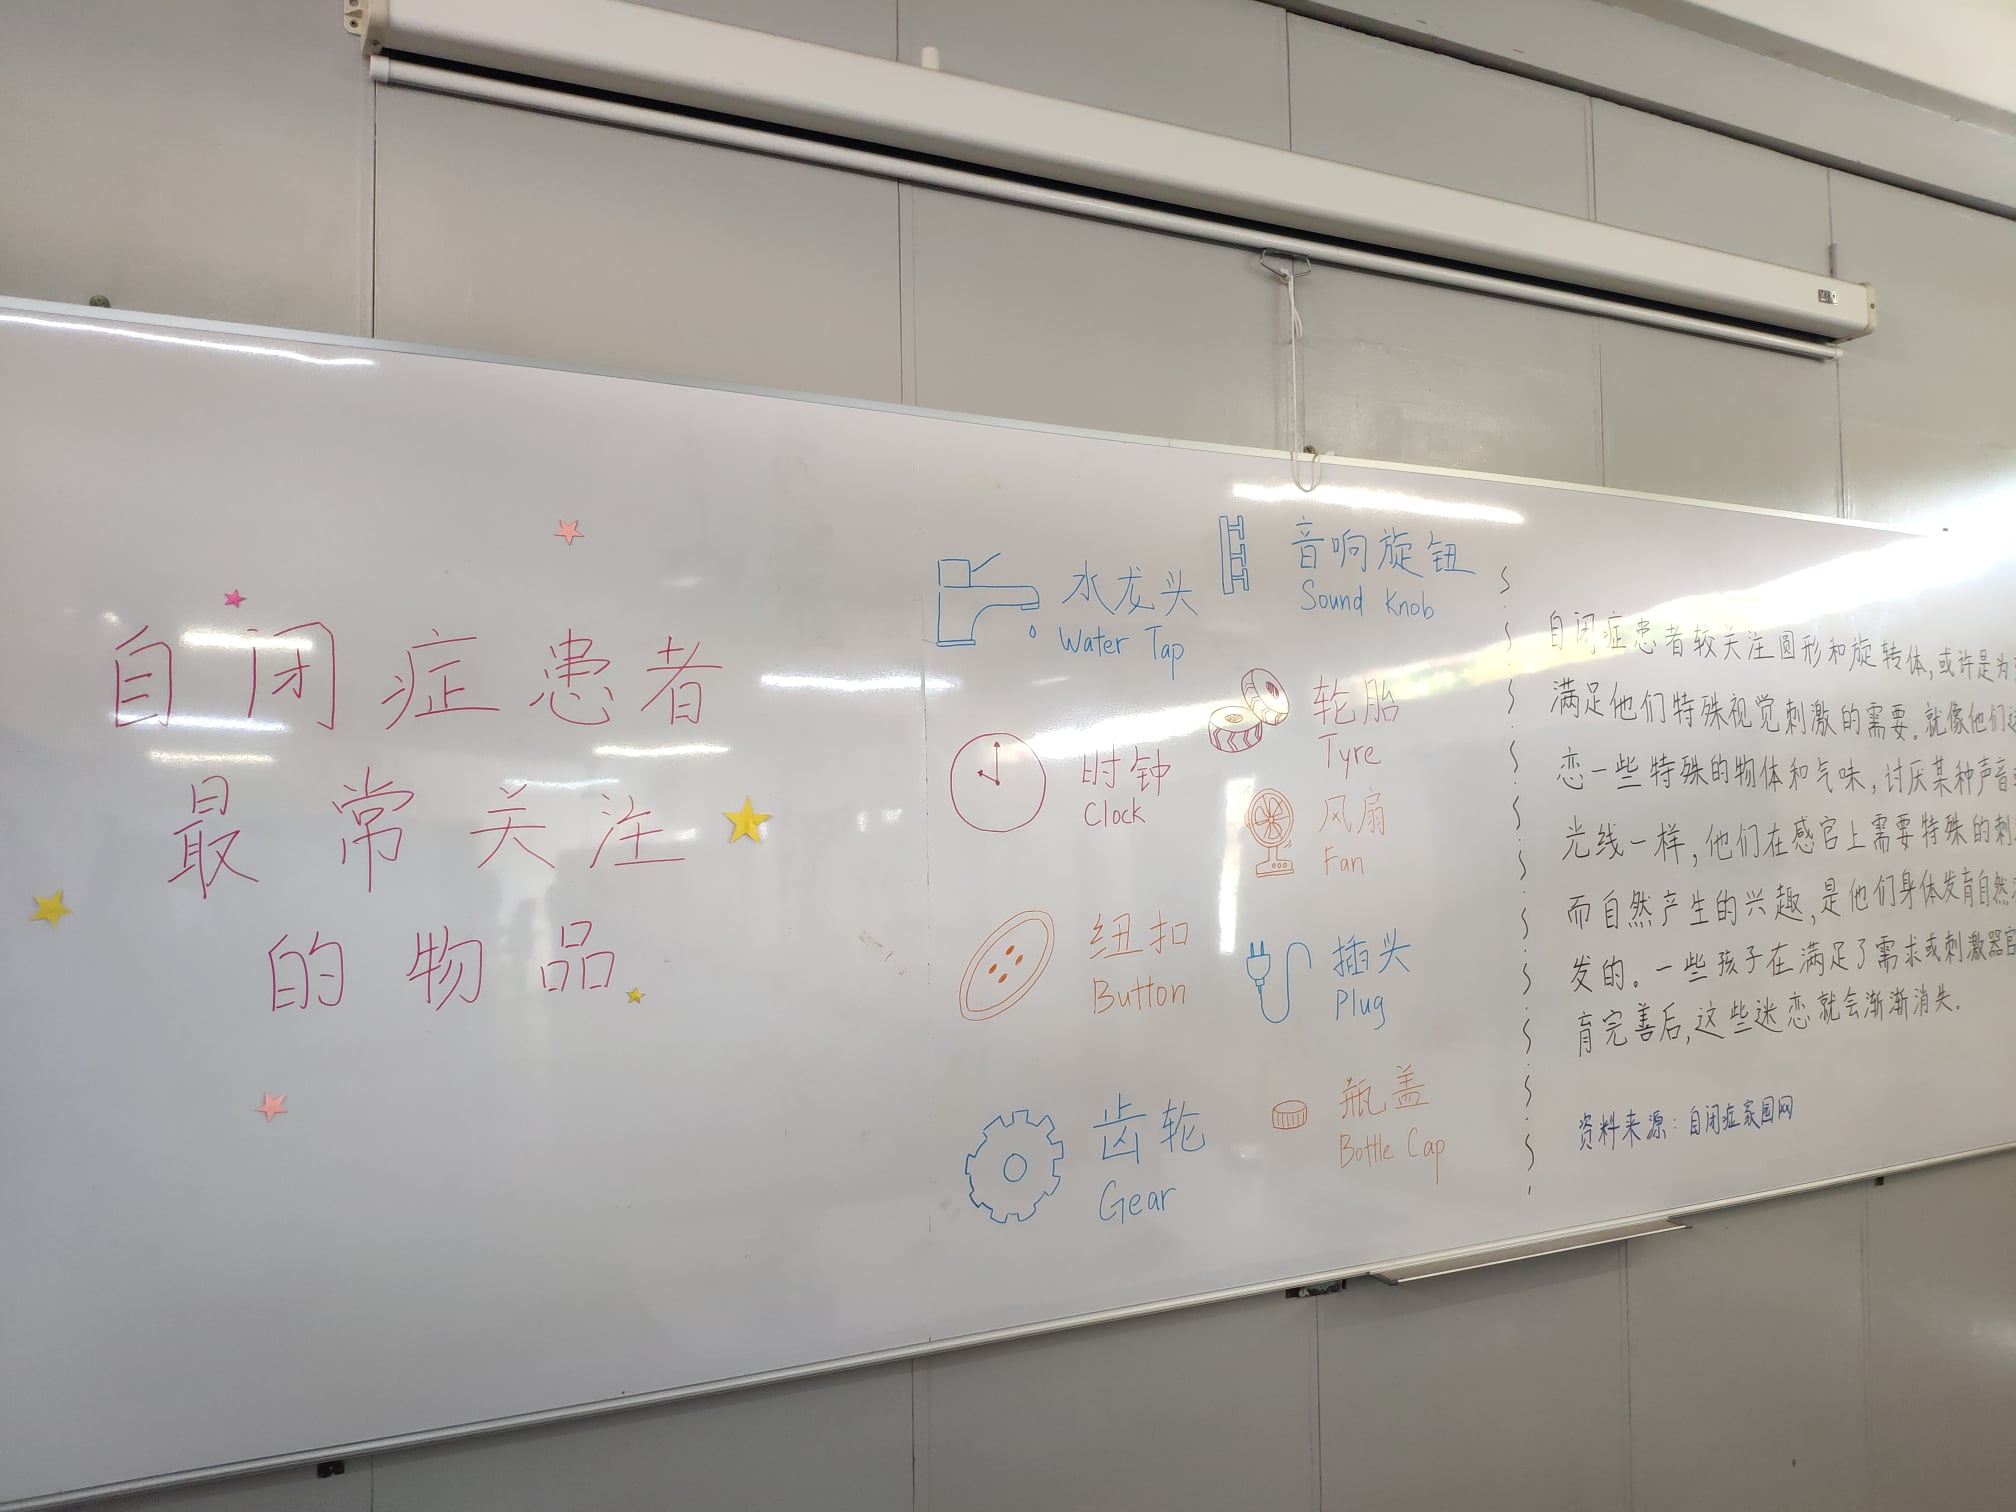 自闭症患者
最常关注
的物品
水龙头
Water Tap
音响旋钮
Sound Knob
时钟
Clock
轮胎
Tyre
风扇
Fan
纽扣
Button
插头
Plug
齿轮
Gear
瓶盖
Bottle Cap
自闭症患者较关注圆形和旋转体,或许是为
满足他们特殊视觉刺激的需要。就像他们
恋一些特殊的物体和气味,讨厌某种声音
光线一样,他们在感官上需要特殊的刺
而自然产生的兴趣,是他们身体发育自然
发的。一些孩子在满足了需求或刺激器官
育完善后,这些迷恋就会渐渐消失。
资料来源:自闭症家园网